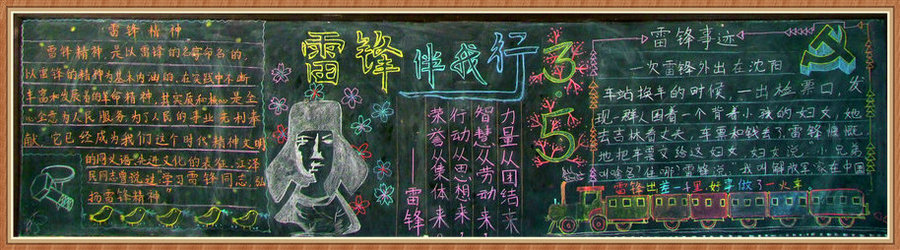 雷锋精神
雷锋精神,是以雷锋的名字命名的,
以雷锋的精神为基本内涵的,在实践中不断
丰富和发展着的革命精神,其实质和核心是全
心全意为人民服务,为了人民的事业无私奉
献。它已经成为我们这个时代精神文明
的同义语,先进文化的表征。江泽
民同志曾说过“学习雷锋同志,弘
扬雷锋精神”
雷锋伴我行
力量从团结来
智慧从劳动来
行动从思想来
荣誉从集体来
——雷锋
3.5
雷锋事迹
一次雷锋外出在沈阳
车站换车的时候,一出检票口,发
现一群人围看一个背着小孩的妇女,她
去吉林看丈夫,车票和钱丢了,雷锋慷慨
地把车票交给这妇女,妇女说:“小兄弟
叫啥名!住哪”雷锋说:“我叫解放军,家在中国
雷锋出差一千里,好事做了一火车。